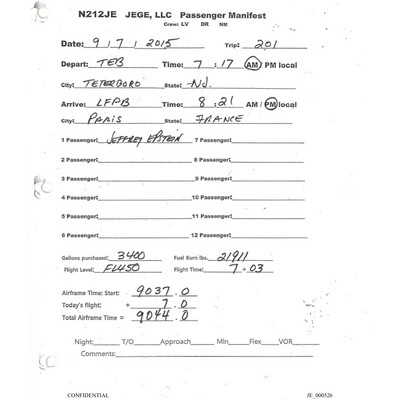 N212JE JEGE, LLC Passenger Manifest
Crew: LV DR NM
Date: 9/7/2015 Trip: 201
Depart: TEB Time: 7:17 AM/PM local
City: TETERBORO State: NJ.
Arrive: LFPB Time: 8:21 AM/PM local
City: PARIS State: FRANCE
1 Passenger: JEFFREY EPSTEIN 7 Passenger:
2 Passenger: 8 Passenger:
3 Passenger: 9 Passenger:
4 Passenger: 10 Passenger:
5 Passenger: 11 Passenger:
6 Passenger: 12 Passenger:
Gallons purchased: 3400 Fuel Burn lbs. 21911
Flight Level: FL450 Flight Time: 7+03
Airframe Time: Start: 9037.0
Today's flight: + 7.0
Total Airframe Time = 9044.0
Night: T/O Approach Min Flex VOR
Comments:
CONFIDENTIAL JE_000526